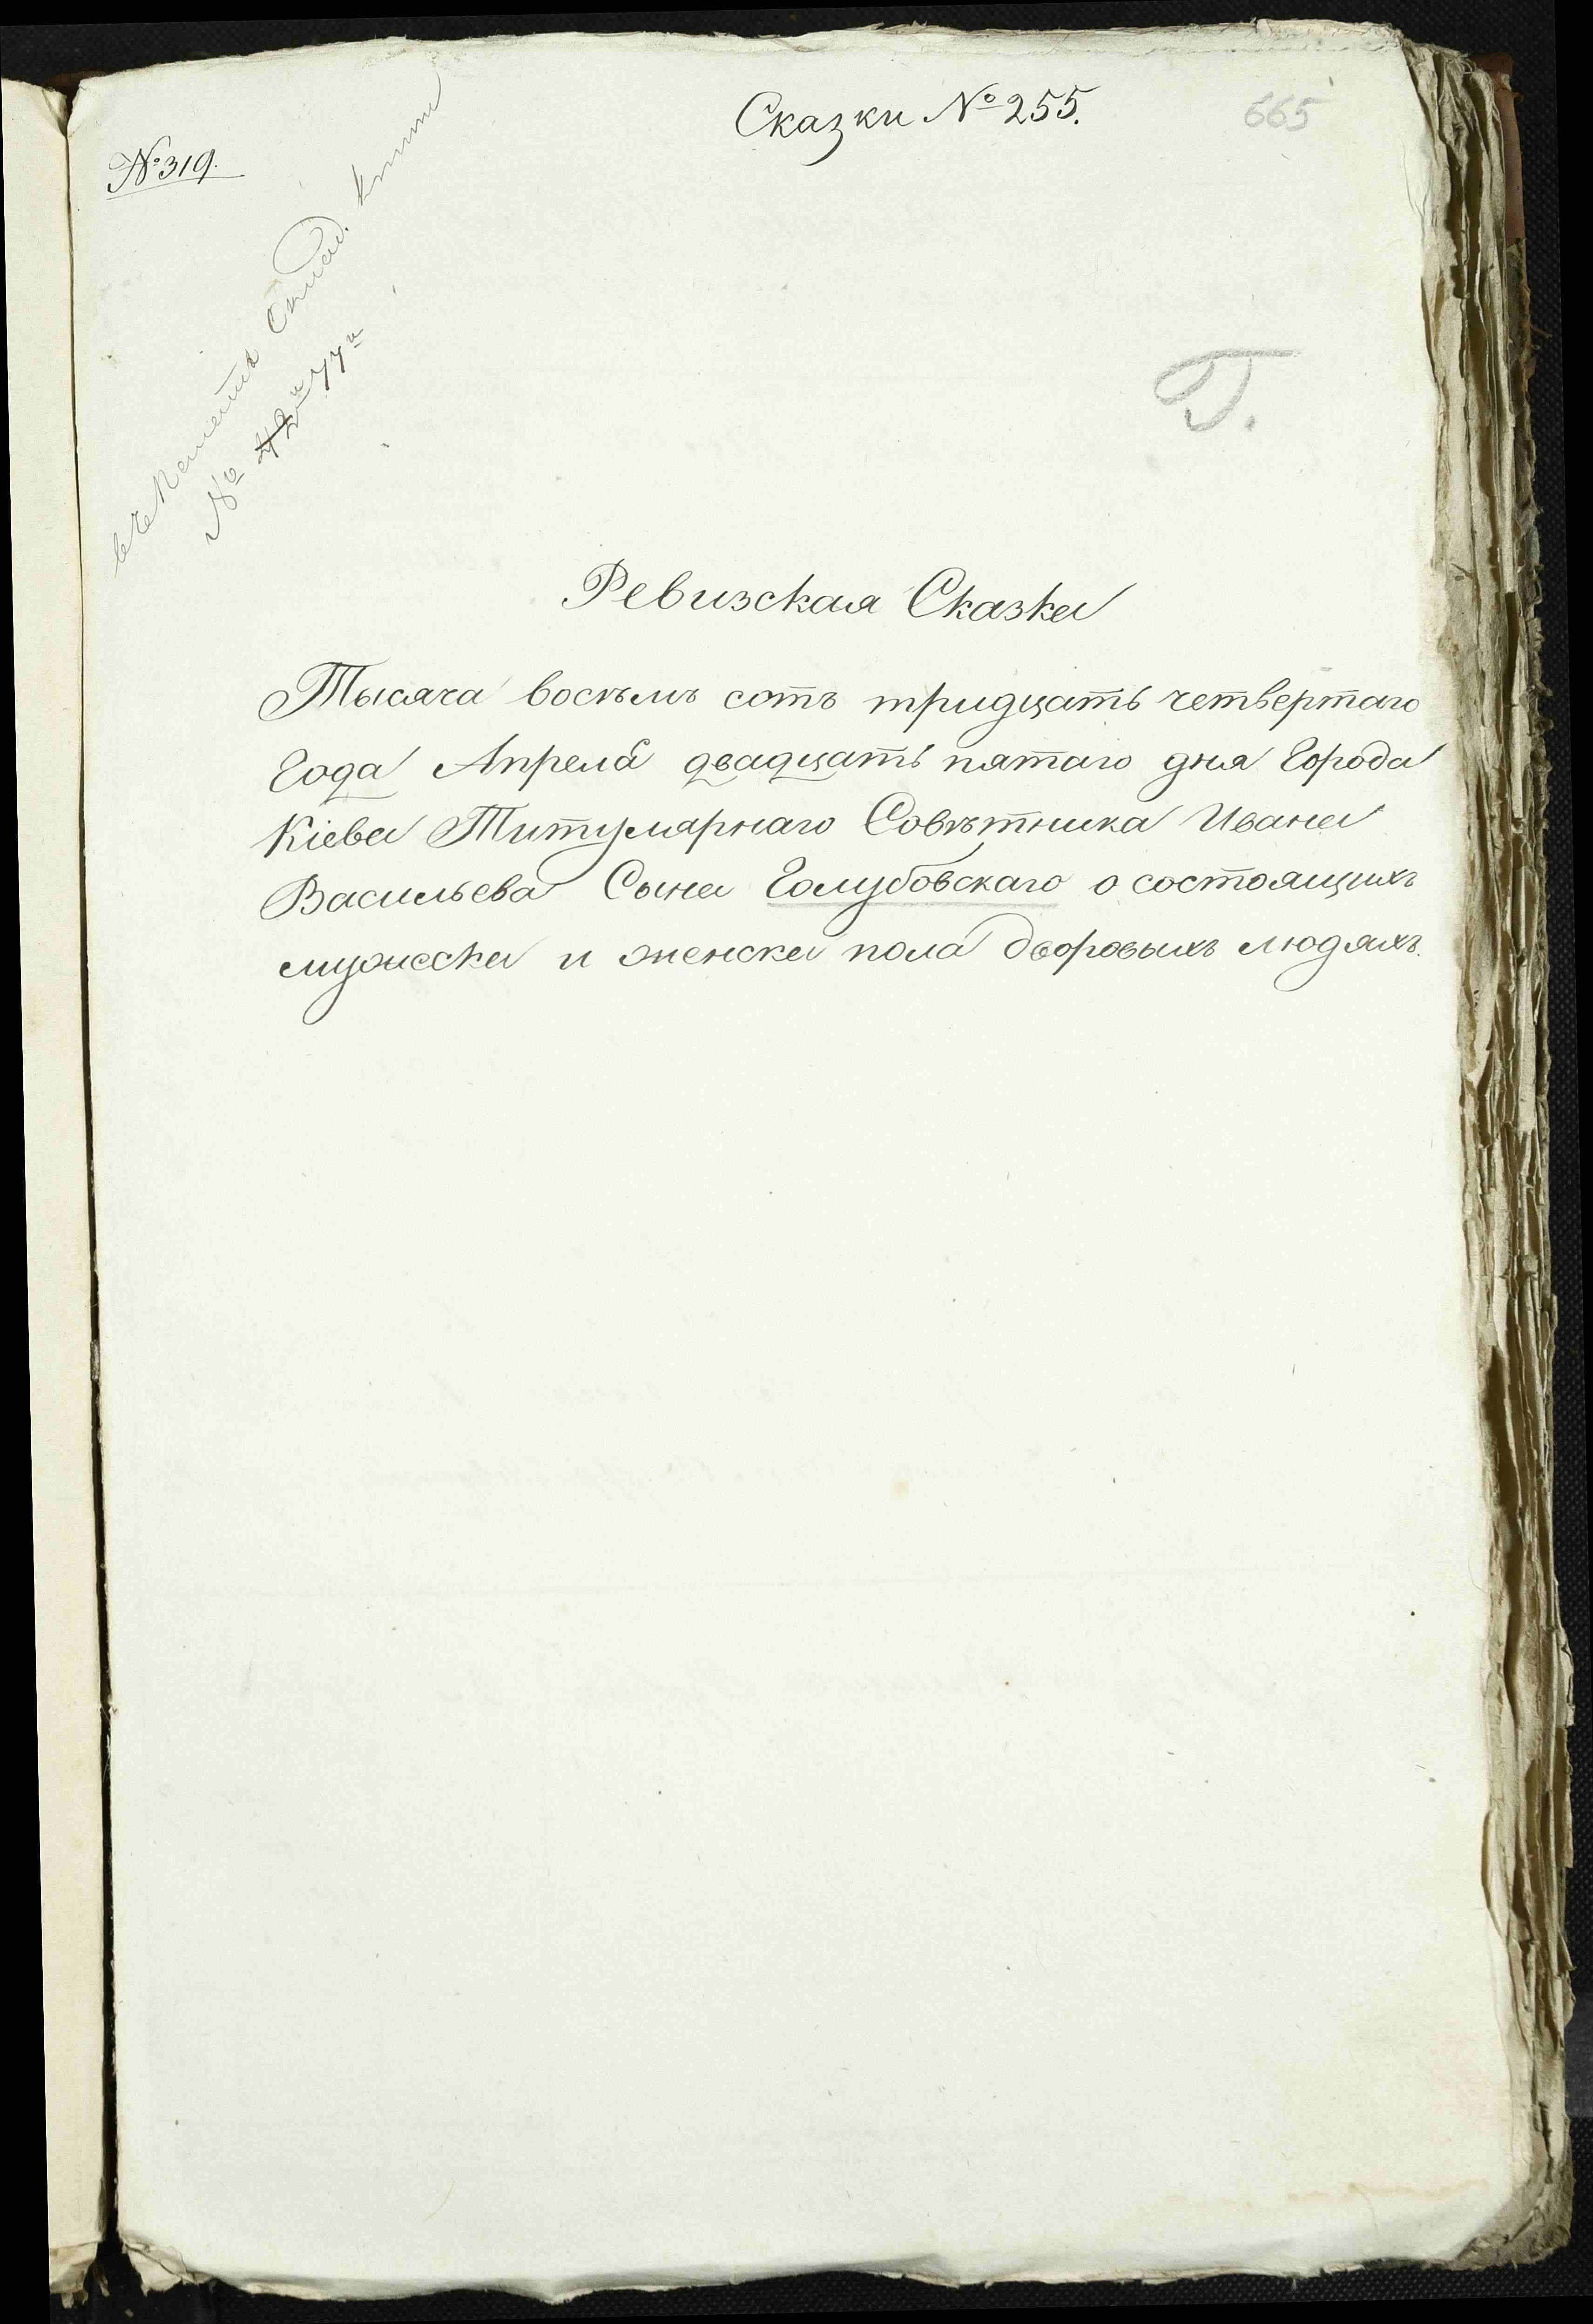 Сказки № 255.
665
№ 319.
№ 42 77
Г.
Ревизская Сказка
Тысяча восѣмъ сотъ тридцать четвертаго
Года Апреля двадцать пятаго дня Города
Кіева Титулярнаго Совѣтника Ивана
Васильева Сына Голубовскаго о состоящихъ
мужеска и женска пола дворовыхъ людяхъ.